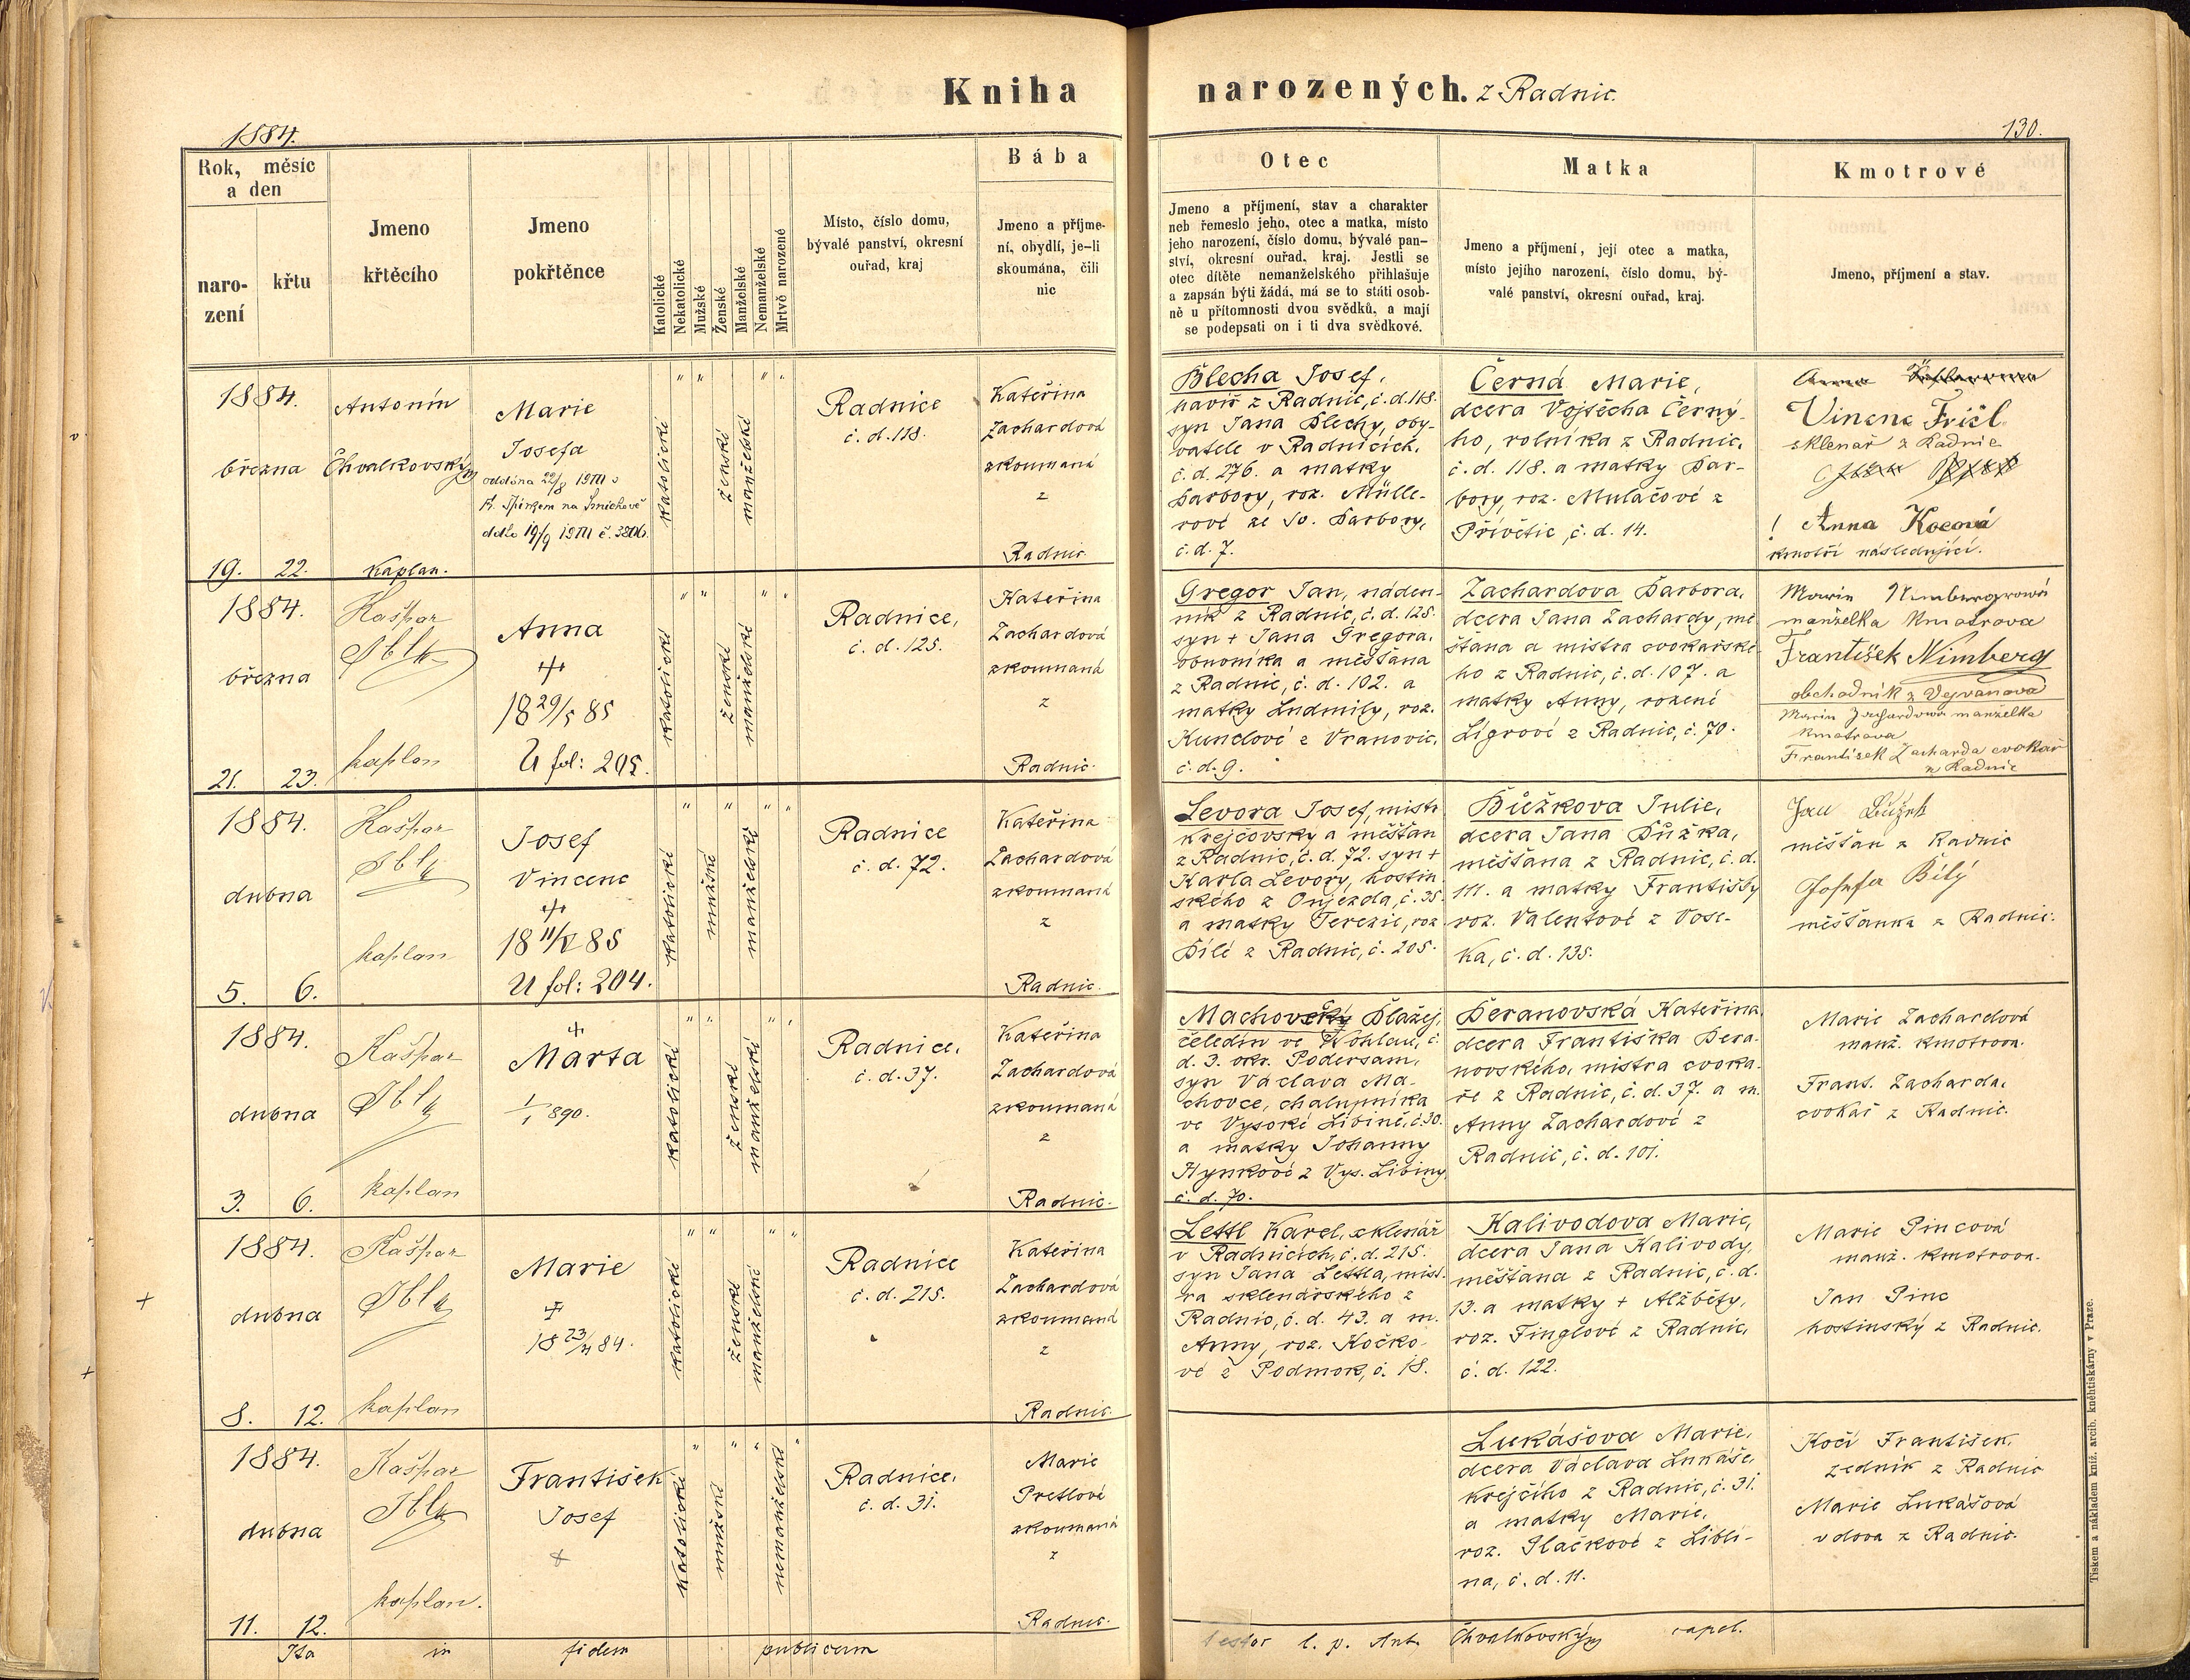 Kniha narozených. z Radnic.
1884.
130.
Rok, měsíc
a den
naro-
zení
křtu
Jmeno
křtěcího
Jmeno
pokřtěnce
Katolické
Nekatolické
Mužské
Ženské
Manželské
Nemanželské
Mrtvě narozené
Místo, číslo domu,
bývalé panství, okresní
ouřad, kraj
Bába
Jmeno a příjme-
ní, obydlí, je-li
skoumána, čili
nic
Otec
Jmeno a příjmení, stav a charakter
neb řemeslo jeho, otec a matka, místo
jeho narození, číslo domu, bývalé pan-
ství, okresní ouřad, kraj. Jestli se
otec dítěte nemanželského přihlašuje
a zapsán býti žádá, má se to státi osob-
ně u přítomnosti dvou svědků, a mají
se podepsati on i ti dva svědkové.
Matka
Jmeno a příjmení, její otec a matka,
místo jejího narození, číslo domu, bý-
valé panství, okresní ouřad, kraj.
Kmotrové
Jmeno, příjmení a stav.
1884.
března
19. 22.
Antonín
Chvalkovský
kaplan.
Marie
Josefa
oddána 22/8 1911 s
Špirkem na Smíchově
katolické
ženské
manželské
Radnice
č. d. 118.
Kateřina
Zachardová
zkoumaná
z
Radnic
Blecha Josef,
havíř z Radnic, č. d. 118.
syn Jana Blechy, oby-
vatele v Radnicích,
č. d. 276. a matky
Barbory, roz. Mülle-
rové ze sv. Barbory,
č. d. 7.
Černá Marie,
dcera Vojtěcha Černý-
ho, rolníka z Radnic,
č. d. 118. a matky Bar-
bory, roz. Mulačové z
Přívětic, č. d. 14.
Vincenc Fričl
sklenář z Radnic
! Anna Kocová
kmotři následující.
1884.
března
21. 23.
Kašpar
kaplan
Anna
18 29/5 85
U fol: 295.
katolické
ženské
manželské
Radnice,
č. d. 125.
Kateřina
Zachardová
zkoumaná
z
Radnic.
Gregor Jan, náden-
ník z Radnic, č. d. 125.
syn + Jana Gregora,
obuvníka a měšťana
z Radnic, č. d. 102. a
matky Ludmily, roz.
Kunclové z Vranovic,
č. d. 9.
Zachardova Barbora,
dcera Jana Zachardy, mě-
šťana a mistra cvokařské-
ho z Radnic, č. d. 107. a
matky Anny, rozené
Lígrové z Radnic, č. 70.
Marie Nimbergrová
manželka kmotrova
František Nimberg
obchodník z Vejvanova
Marie Zachardová manželka
kmotrova
František Zacharda cvokař
z Radnic
1884.
dubna
5. 6.
Kašpar
kaplan
Josef
Vincenc
85
U fol: 204.
katolické
mužské
manželské
Radnice
č. d. 72.
Kateřina
Zachardová
zkoumaná
z
Radnic.
Levora Josef, mistr
krejčovský a měšťan
z Radnic, č. d. 72. syn +
Karla Levory, hostin-
ského z Oujezda, č. 35.
a matky Terezie, roz.
Bílé z Radnic, č. 205.
Bůžkova Julie,
dcera Jana Bůžka,
měšťana z Radnic, č. d.
111. a matky Františky
roz. Valentové z Vose-
ka, č. d. 135.
Jan Bůžek
měšťan z Radnic
Josefa Bílý
měšťanka z Radnic.
1884.
dubna
3. 6.
Kašpar
kaplan
Marta
1/1 890.
katolické
ženské
manželské
Radnice,
č. d. 37.
Kateřina
Zachardová
zkoumaná
z
Radnic.
Blažej,
čeledín ve Wohlau, č.
d. 3. okr. Podersam,
syn Václava Ma-
chovce, chalupníka
ve Vysoké Libině, č. 30.
a matky Johanny
Hynkové z Vys. Libiny,
č. d. 70.
Beranovská Kateřina,
dcera Františka Bera-
novského, mistra cvoka-
ře z Radnic, č. d. 37. a m.
Anny Zachardové z
Radnic, č. d. 101.
Marie Zachardová
manž. kmotrova.
Frant. Zacharda,
cvokař z Radnic.
1884.
dubna
8. 12.
Kašpar
kaplan
Marie
18 23/4 84.
katolické
ženské
manželské
Radnice
č. d. 215.
Kateřina
Zachardová
zkoumaná
z
Radnic
Lettl Karel, sklenář
v Radnicích, č. d. 215.
syn Jana Lettla, mist-
ra sklenářského z
Radnic, č. d. 43. a m.
Anny, roz. Kočko-
vé z Podmok, č. 18.
Kalivodova Marie,
dcera Jana Kalivody,
měšťana z Radnic, č. d.
13. a matky + Alžběty,
roz. Finglové z Radnic,
č. d. 122.
Marie Pincová
manž. kmotrova.
Jan Pinc
hostinský z Radnic.
1884.
dubna
11. 12.
Kašpar
kaplan.
František
Josef
katolické
mužské
nemanželské
Radnice,
č. d. 31.
Marie
Pretlové
zkoumaná
z
Radnic.
Lukášova Marie,
dcera Václava Lukáše,
krejčího z Radnic, č. 31.
a matky Marie,
roz. Ptačkové z Libli-
na, č. d. 11.
Kočí František,
zedník z Radnic
Marie Lukášová
vdova z Radnic.
Ita in fidem publicam
testor l. p. Ant. Chvalkovský capel.
Tiskem a nákladem kniž. arcib. knihtiskárny v Praze.